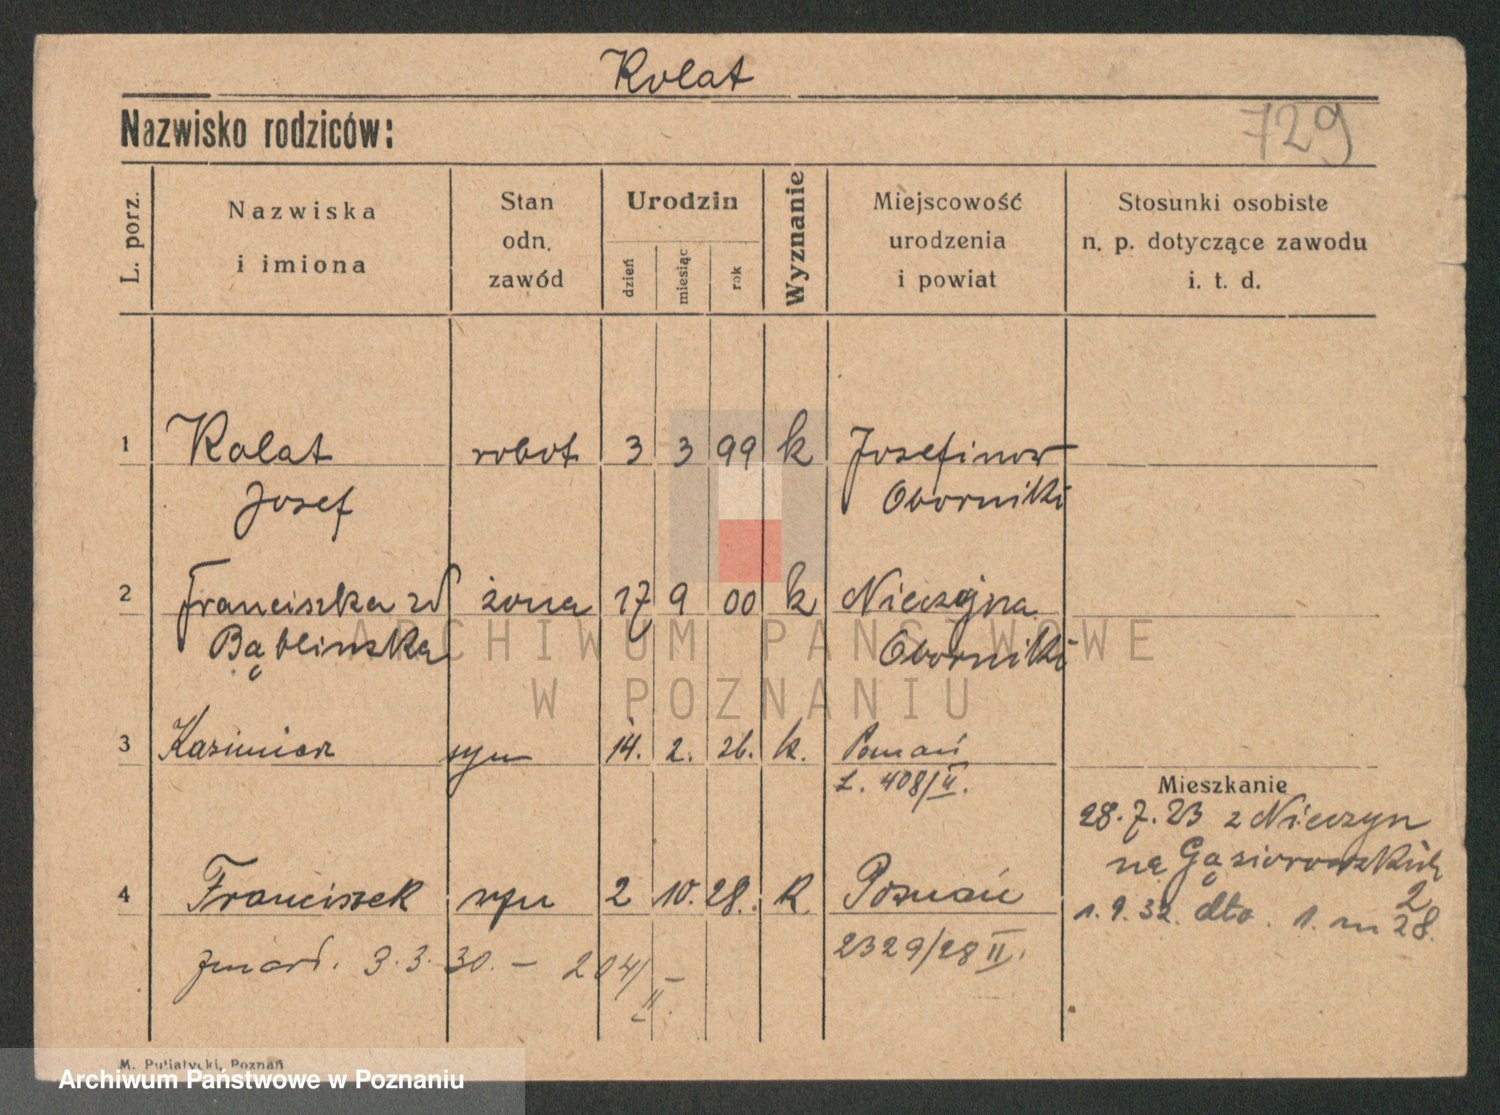 Kolat
Nazwisko rodziców:
729
L. porz.
Nazwiska
i imiona
Stan
odn.
zawód
Urodzin
dzień
miesiąc
rok
Wyznanie
Miejscowość
urodzenia
i powiat
Stosunki osobiste
n. p. dotyczące zawodu
i. t. d.
1 Kolat robot 3 3 99 k Josefinow
Josef Oborniki
2 Franciszka zd żona 17 9 00 k Nieczajna
Bąblinska Oborniki
ARCHIWUM PAŃSTWOWE
W POZNANIU
3 Kazimierz syn 14. 2. 26. k. Poznań
L. 408/II.
Mieszkanie
28. 7. 23 z Nieczyn
na Gąsiorowskich
2
4 Franciszek syn 2 10. 28. k. Poznań
1. 9. 32. dto. 1. m 28.
2329/28 II.
zmarł. 3. 3. 30. – 204/II –
M. Putiatycki, Poznań
Archiwum Państwowe w Poznaniu